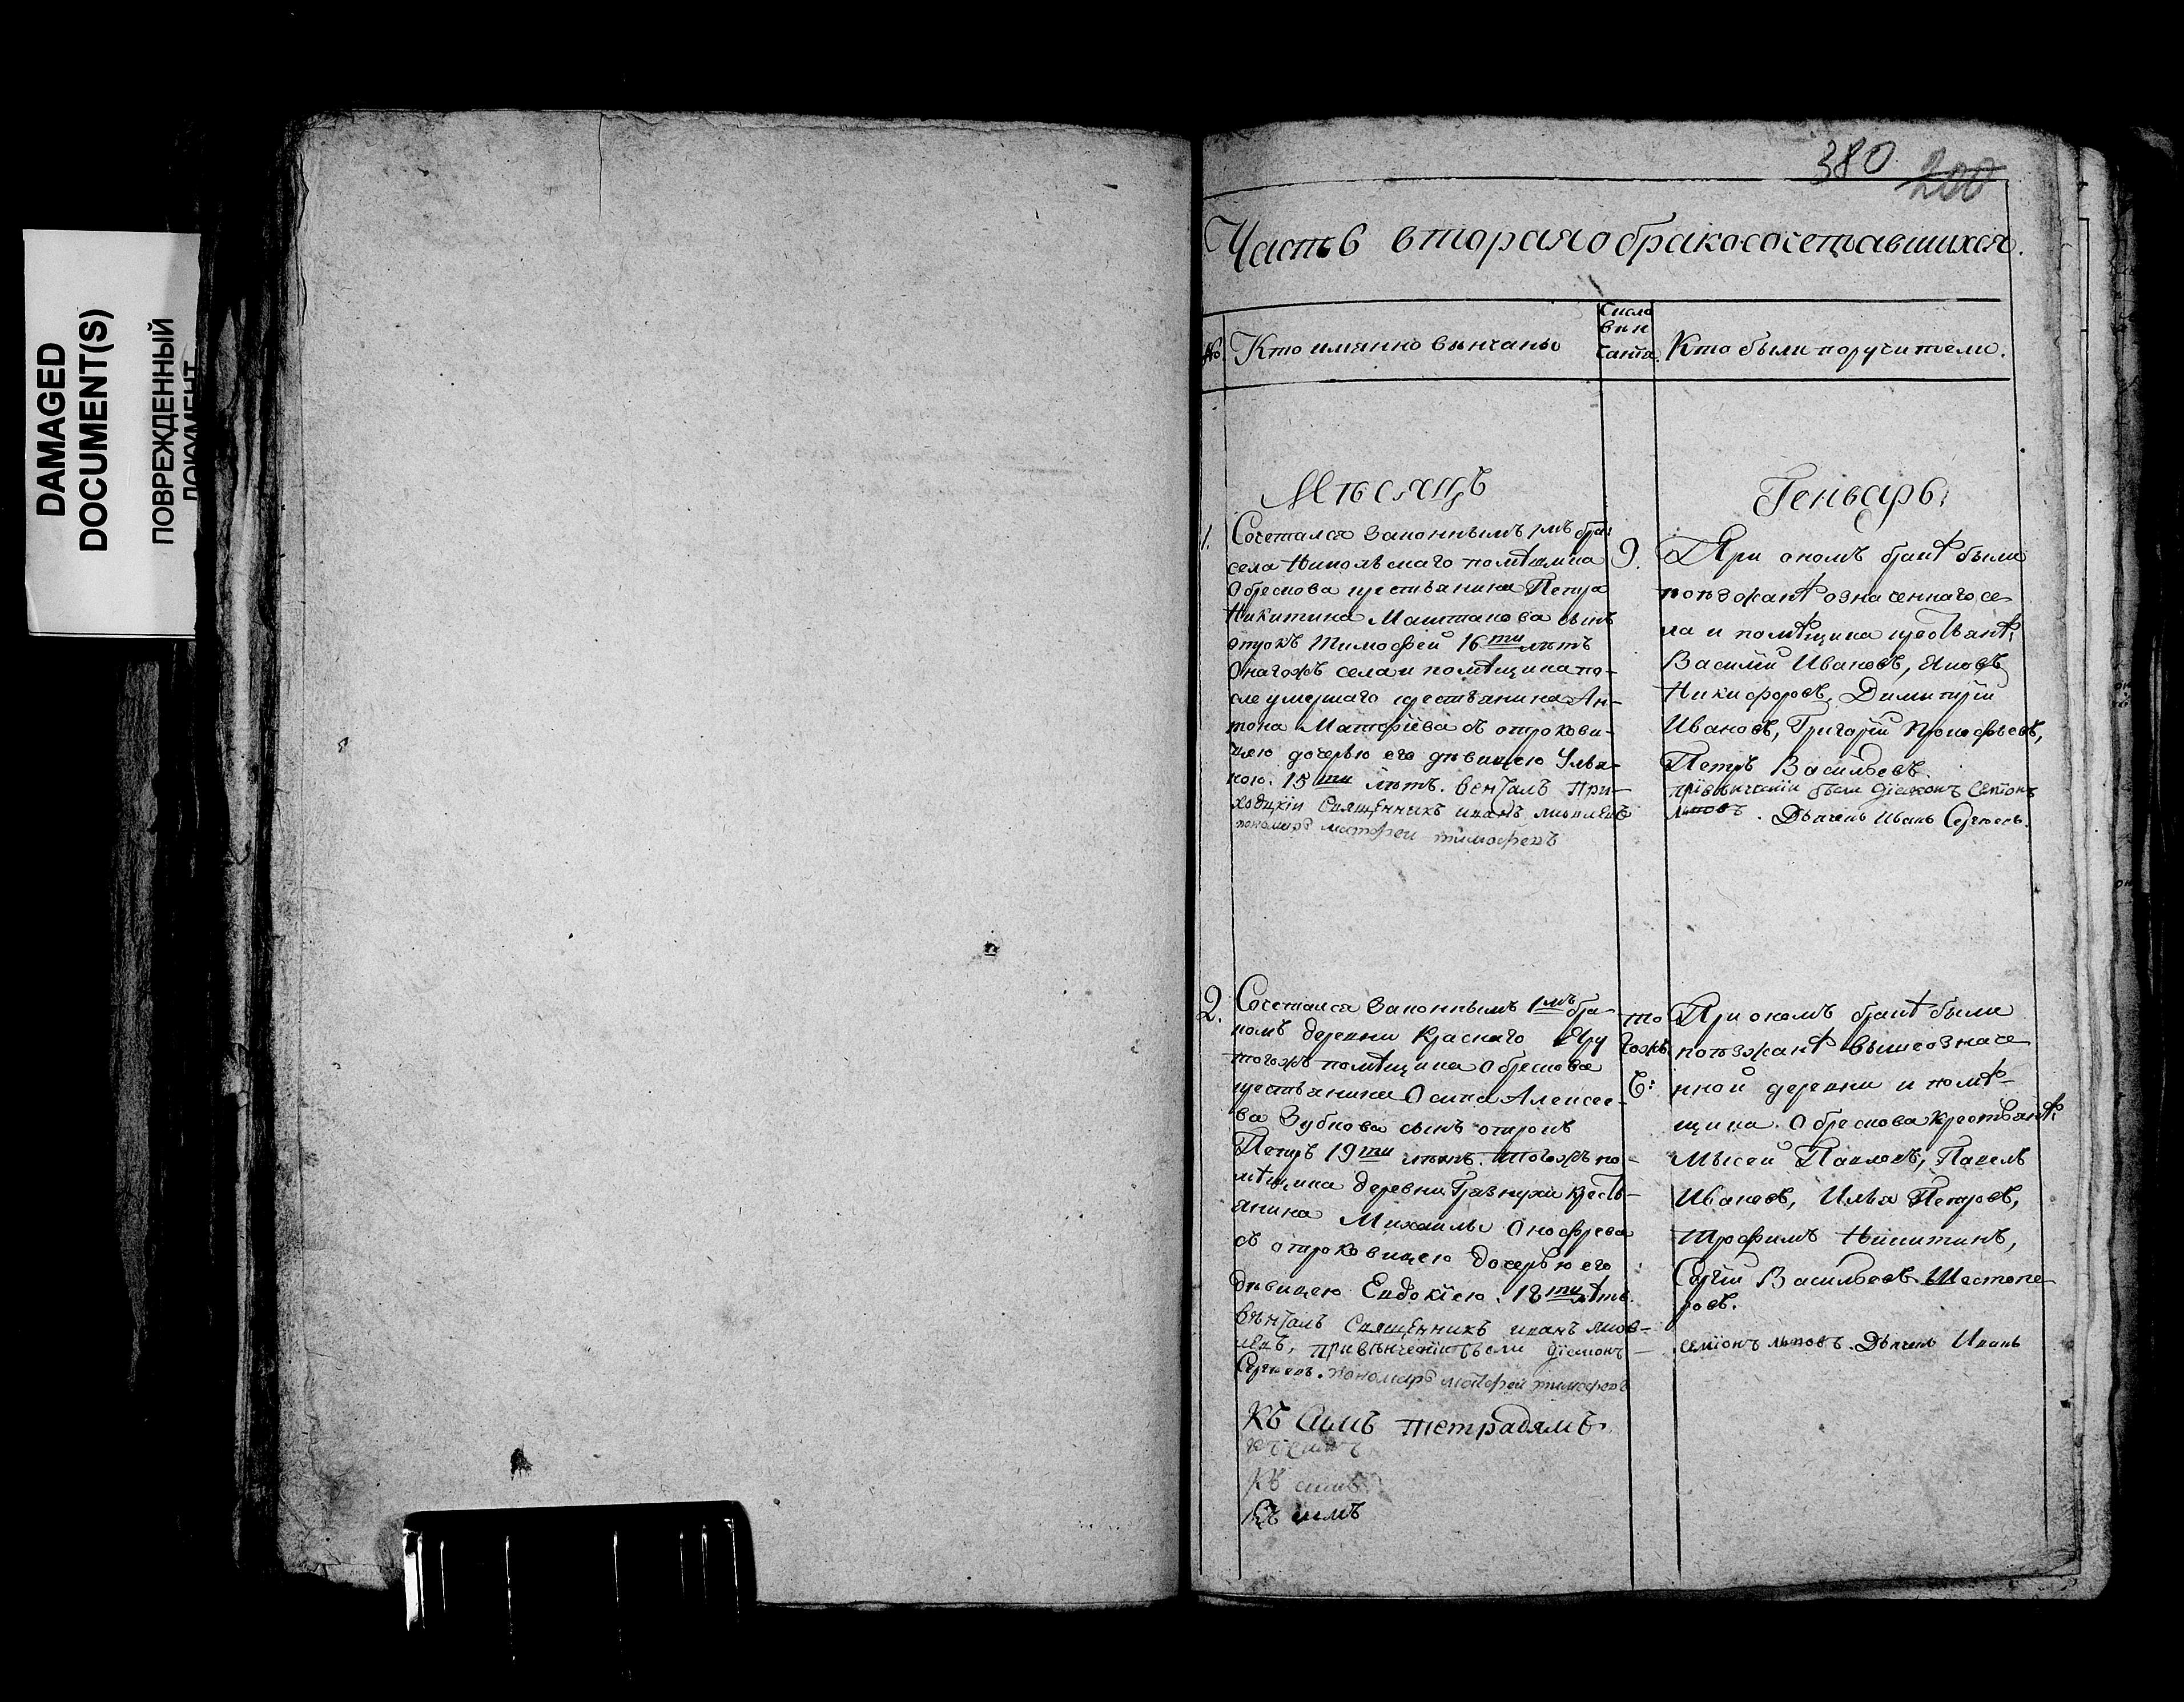 DAMAGED
DOCUMENT(S)
ПОВРЕЖДЕННЫЙ
ДОКУМЕНТ
380
200
Часть вторая о бракосочетавшихся.
№
Кто имянно вѣнчаны
Число
вѣн
чанїя.
Кто были поручители.
Мѣсяцъ
Генварь.
1.
Сочетался законнымъ 1мъ бра
села Никольскаго помѣщика
Обрескова крестьянина Петра
Никитина Маштакова сынъ
отрокъ Тимофей 16ти лѣтъ
Онагожъ села и помѣщика по-
сле умершаго крестьянина Ан-
тона Матфїева съ отрокови-
цею дочерью его дѣвицею Улья-
ною. 15ти лѣтъ. венчалъ при-
ходцкїи Священникъ иванъ
пономарь матфеи тимофеевъ
9.
При ономъ бракѣ были
поѣзжанѣ означеннаго се
ла и помѣщика крестьянѣ:
Василїй Ивановъ, Яковъ
Никифоровъ, Димитрїй
Ивановъ, Григорїй Прокофьевъ,
Петръ Васильевъ.
при вѣнчанїи были дїаконъ семїонъ
львовъ. Дьячекъ Иванъ Сергѣевъ.
2.
Сочетался законнымъ 1мъ бра-
комъ деревни Краснаго Яру
тогожъ помѣщика Обрескова
крестьянина Осипа Алексее-
ва Зубкова сынъ отрокъ
Петръ 19ти лѣтъ. тогожъ по-
мѣщика деревни Грязнухи кресть-
янина Михаилы Онофрева
съ отроковицею дочерью его
дѣвицею Евдокїею. 18ти лѣтъ.
вѣнчалъ Священникъ иванъ
при вѣнчанїи были дїаконъ
Сергѣевъ. пономарь матфеи тимофеевъ
то
гожъ
Ч:
При ономъ бракѣ были
поѣзжанѣ вышеозначе
нной деревни и помѣ-
щика Обрескова крестьянѣ:
Мысей Павловъ, Павелъ
Ивановъ, Илья Петровъ,
Трофимъ Никитинъ,
Сергїй Васильевъ Шестопе-
ровъ.
семїонъ львовъ. Дьячекъ Иванъ
Къ симъ тетрадямъ
къ симъ
къ симъ
Къ симъ